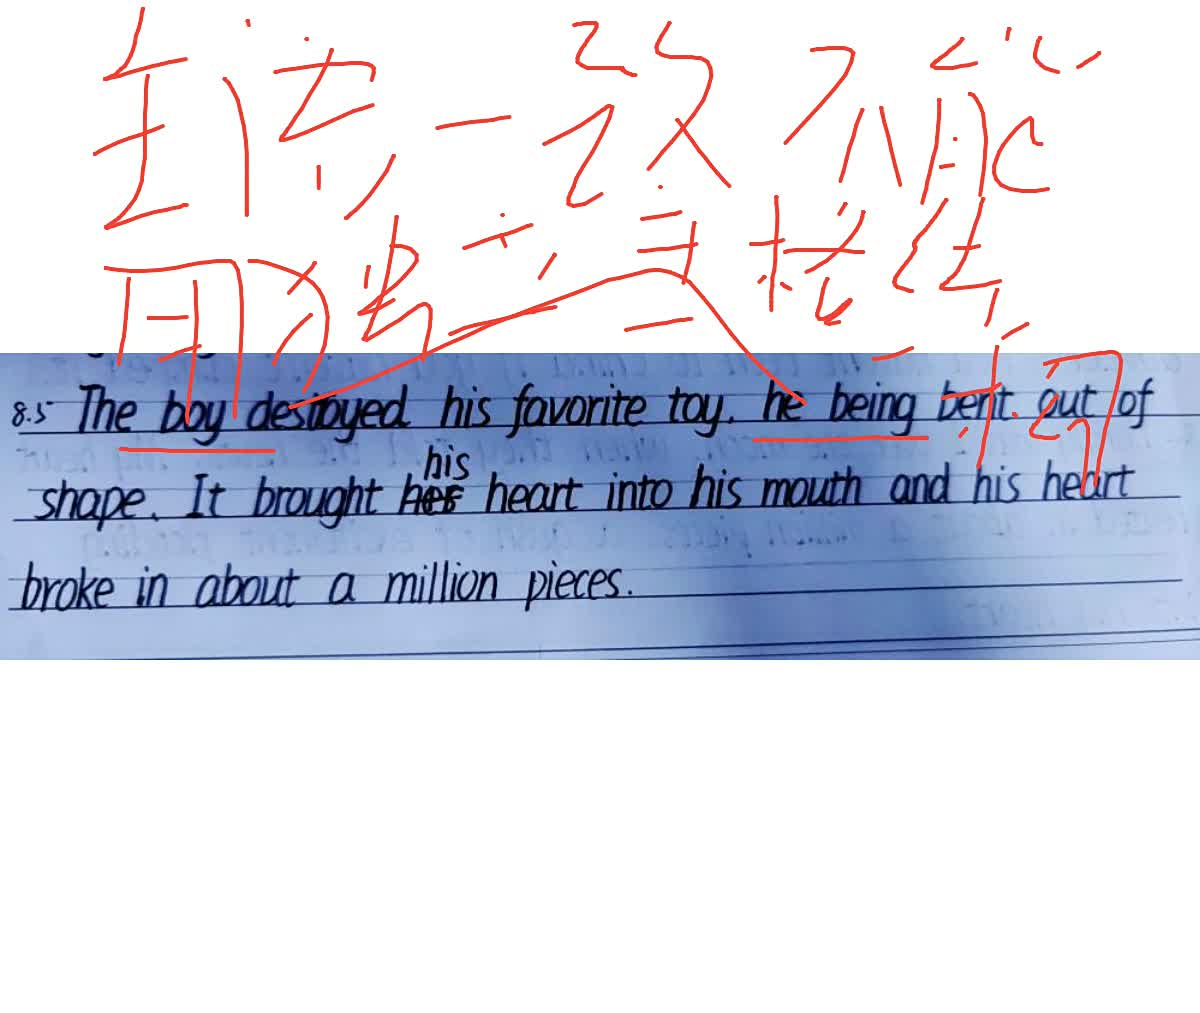 主语一致不能
用独立主格结构
8.5 The boy destroyed his favorite toy, he being bent out of
his
shape. It brought heart into his mouth and his heart
broke in about a million pieces.